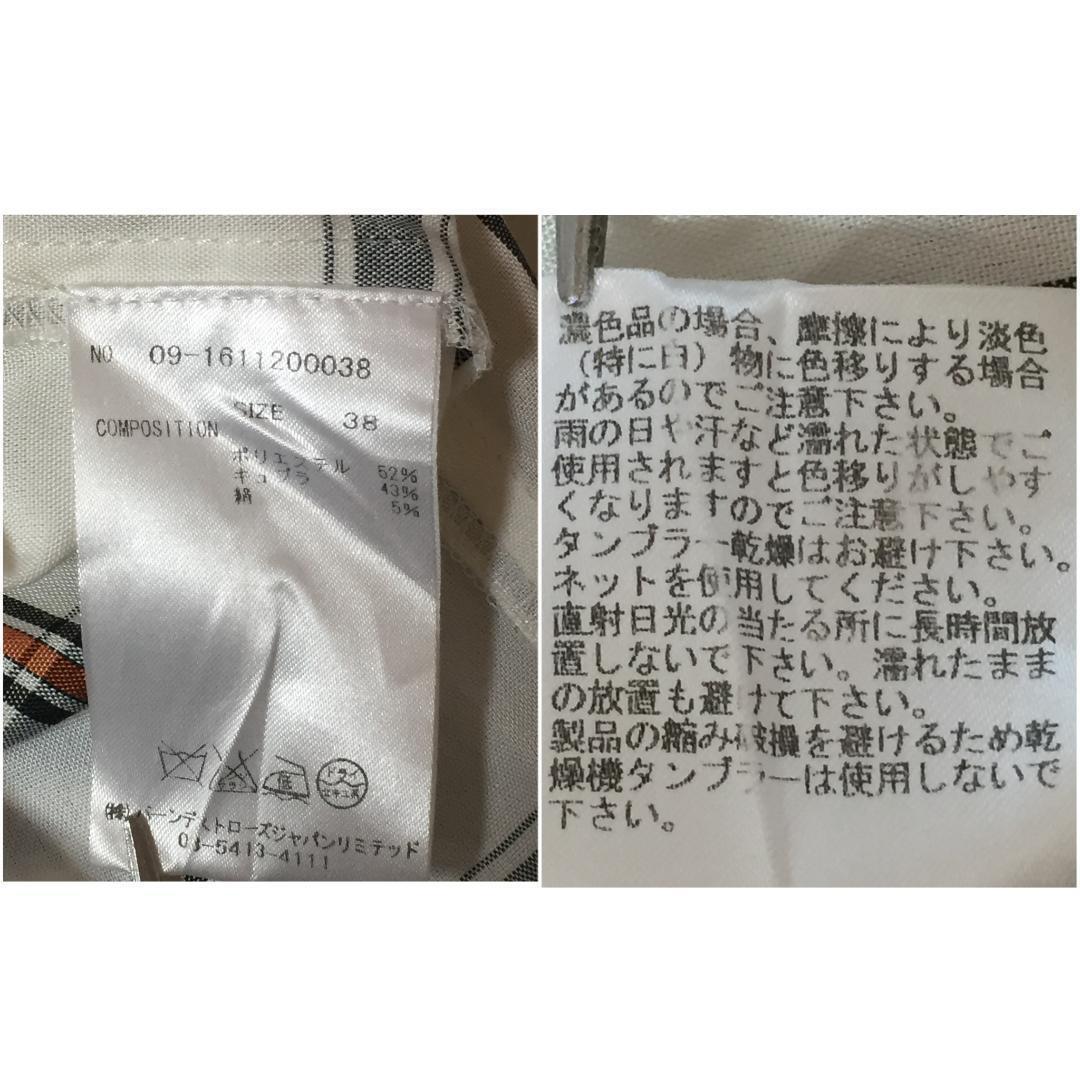 NO 09-1611200038
SIZE 38
COMPOSITION
ポリエステル 52%
キュプラ 43%
絹 5%
ドライ
(株)バーンデストローズジャパンリミテッド
03-5413-4111
濃色品の場合、摩擦により淡色
（特に白）物に色移りする場合
があるのでご注意下さい。
雨の日や汗など濡れた状態でご
使用されますと色移りがしやす
くなりますのでご注意下さい。
タンブラー乾燥はお避け下さい。
ネットを使用してください。
直射日光の当たる所に長時間放
置しないで下さい。濡れたまま
の放置も避けて下さい。
製品の縮み破損を避けるため乾
燥機タンブラーは使用しないで
下さい。